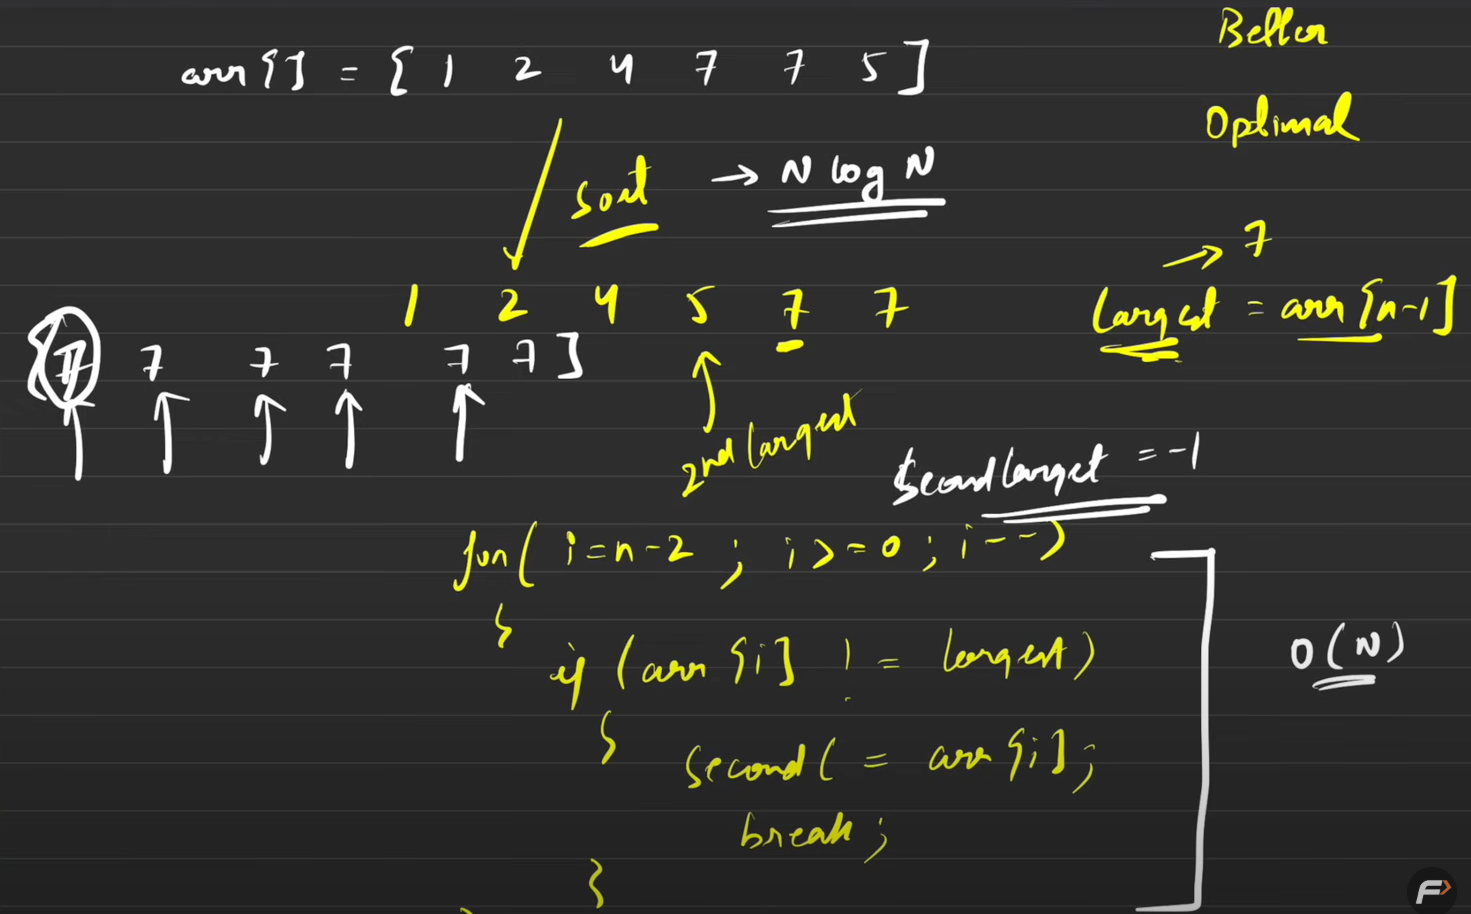 Better
arr[] = [ 1 2 4 7 7 5 ]
Optimal
Sort → N log N
→ 7
1 2 4 5 7 7
largest = arr[n-1]
[ 7 7 7 7 7 7 ]
2nd largest
Secondlargest = -1
for( i=n-2 ; i>=0 ; i--)
{
if (arr[i] != largest)
O(N)
{
secondl = arr[i];
break;
}
}